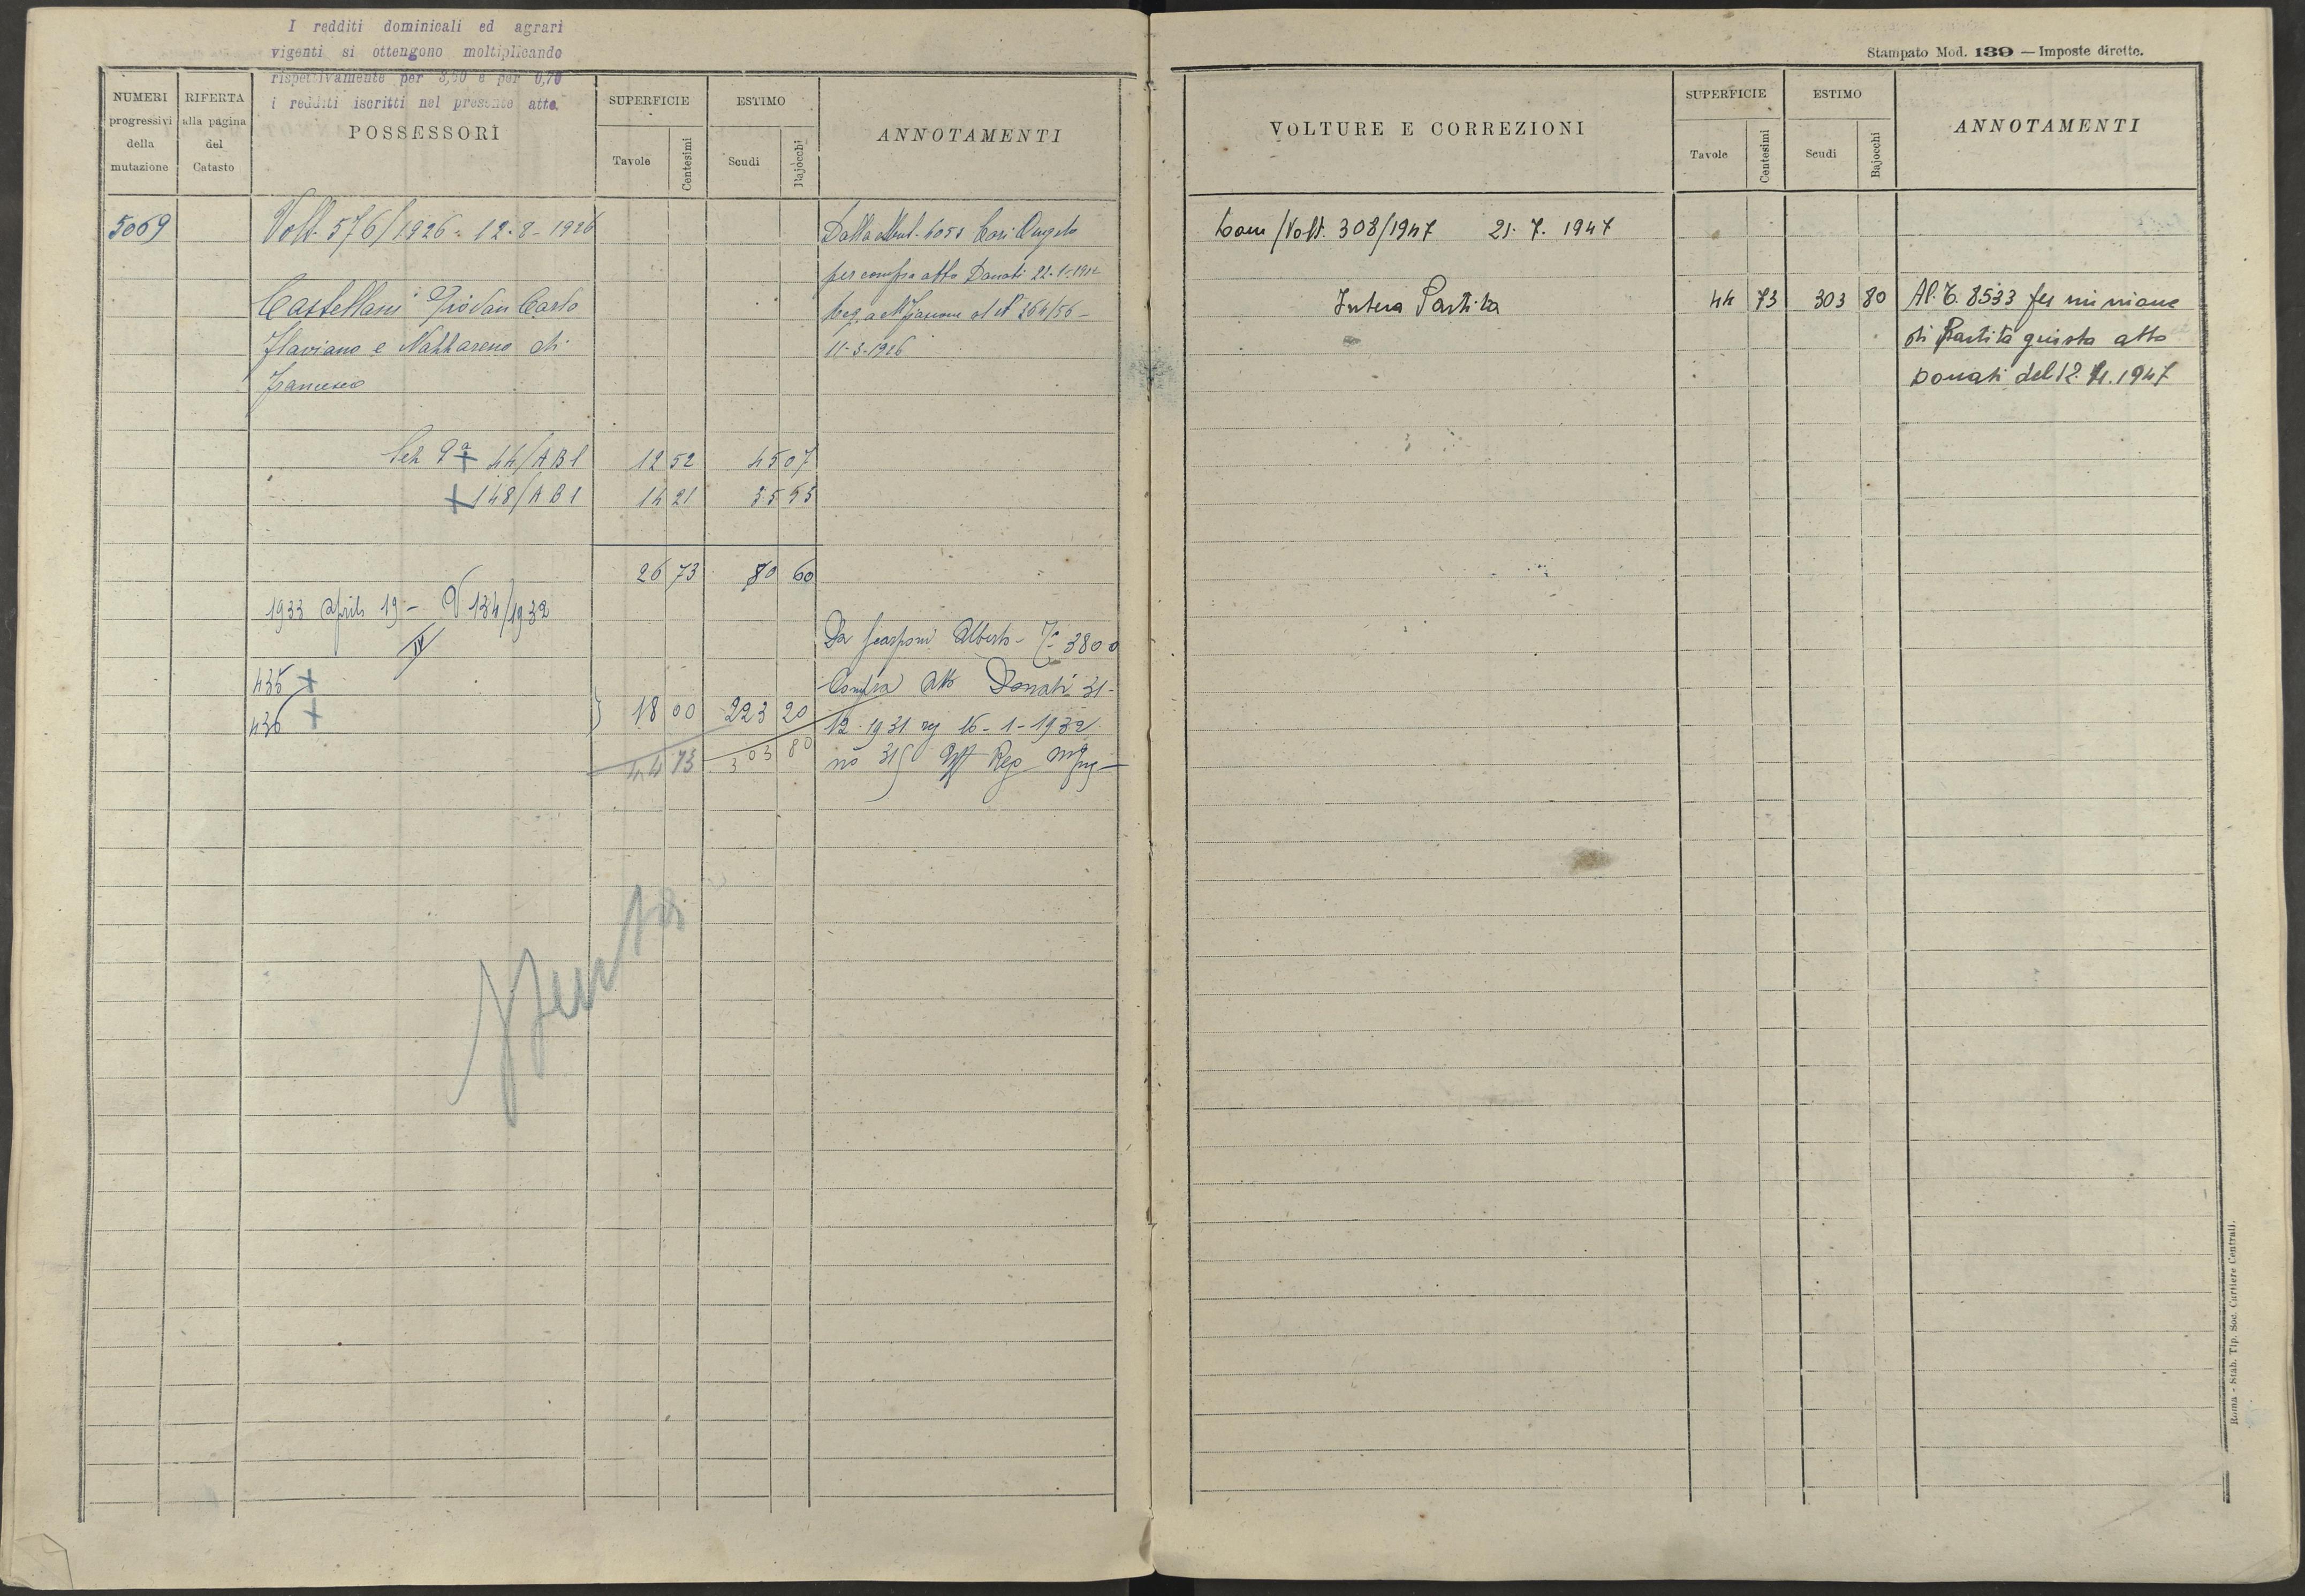 I redditi dominicali ed agrari
vigenti si ottengono moltiplicando
rispettivamente per 3,50 e per 0,70
i redditi iscritti nel presente atto.
NUMERI progressivi della mutazione
RIFERTA alla pagina del Catasto
POSSESSORI
SUPERFICIE
Tavole
Centesimi
ESTIMO
Scudi
Bajocchi
ANNOTAMENTI
5069
Volt. 576/1926 - 12-8-1926
Castellani Giovan Carlo
Flaviano e Nazzareno di
Francesco
Sez 9ª + 44/AB1 12 52 45 07
+ 148/AB1 14 21 35 53
26 73 80 60
1933 aprile 19 - V 134/1932
IV
435 +
436 + } 18 00 223 20
44 73 303 80
Dalla Mut. 6051 Cori Angelo
per compra atto Donati 22-1-1912
Reg. a al N 264/56 -
11-3-1926
Da Alberto - 3800
Compra Atto Donati 31-
12-1931 reg 16-1-1932
no 315 Reg
Stampato Mod. 139 — Imposte dirette.
VOLTURE E CORREZIONI
SUPERFICIE
Tavole
Centesimi
ESTIMO
Scudi
Bajocchi
ANNOTAMENTI
/Volt. 308/1947 21. 7. 1947
Intera Partita 44 73 303 80
Al. 8533 per riunione
di Partita giusta atto
Donati del 12. 1947
Roma - Stab. Tip. Soc. Cartiere Centrali.